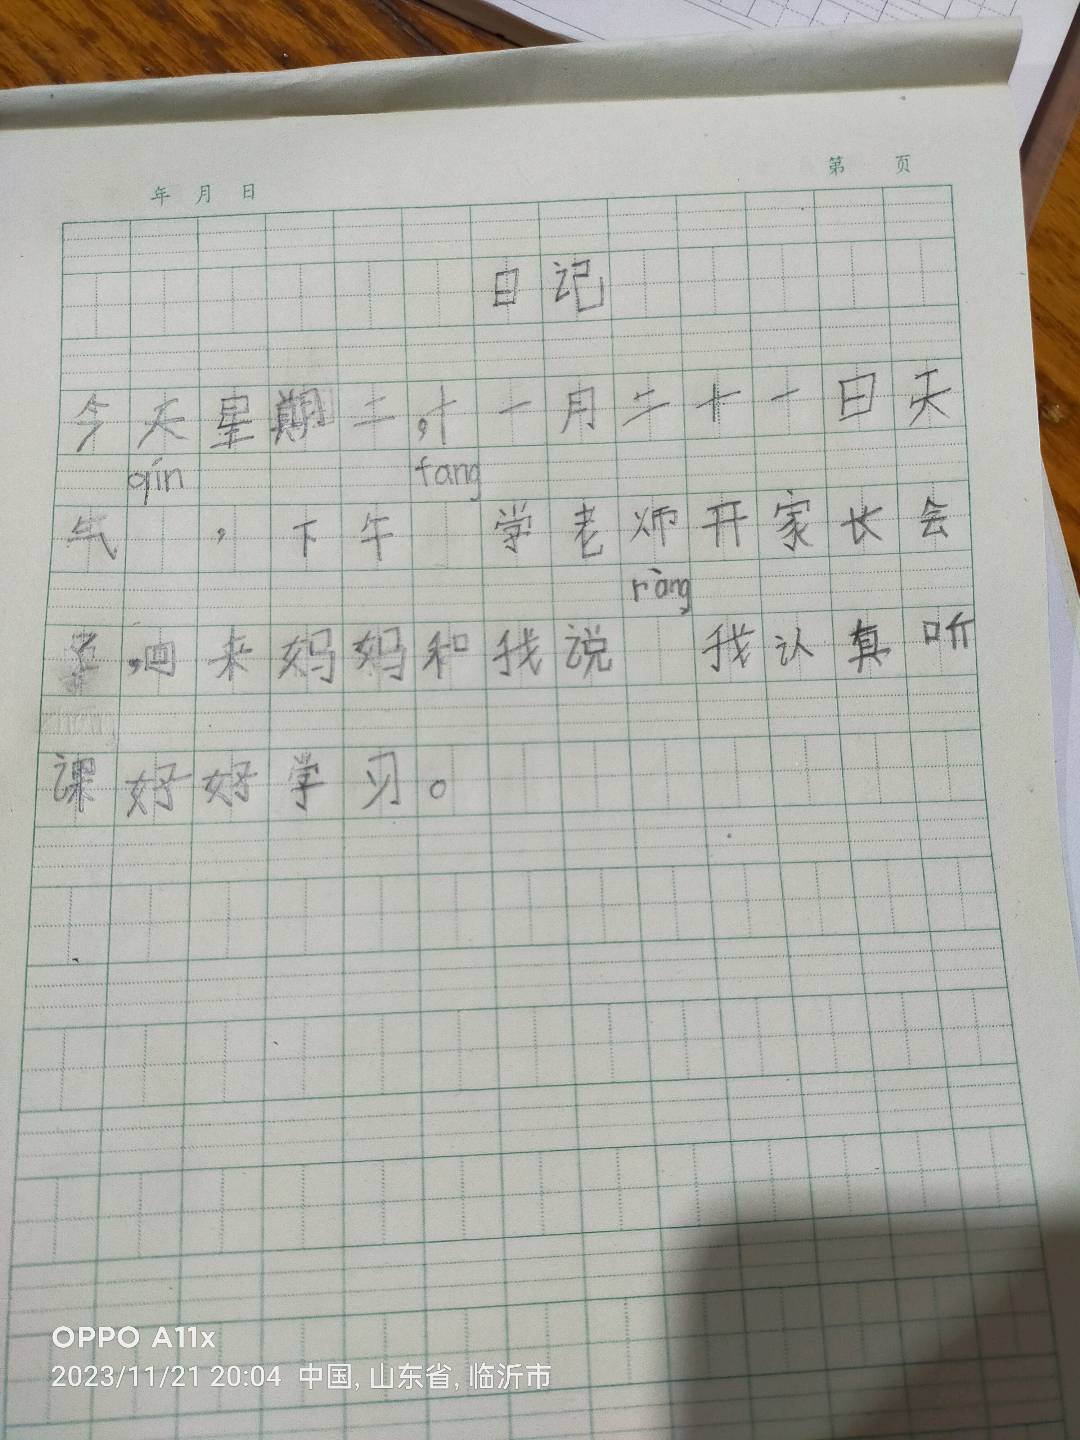 年 月 日
第 页
日记
今天星期二,十一月二十一日天
qín fang
气 ,下午 学老师开家长会
ràng
,回来妈妈和我说 我认真听
课好好学习。
OPPO A11x
2023/11/21 20:04 中国, 山东省, 临沂市